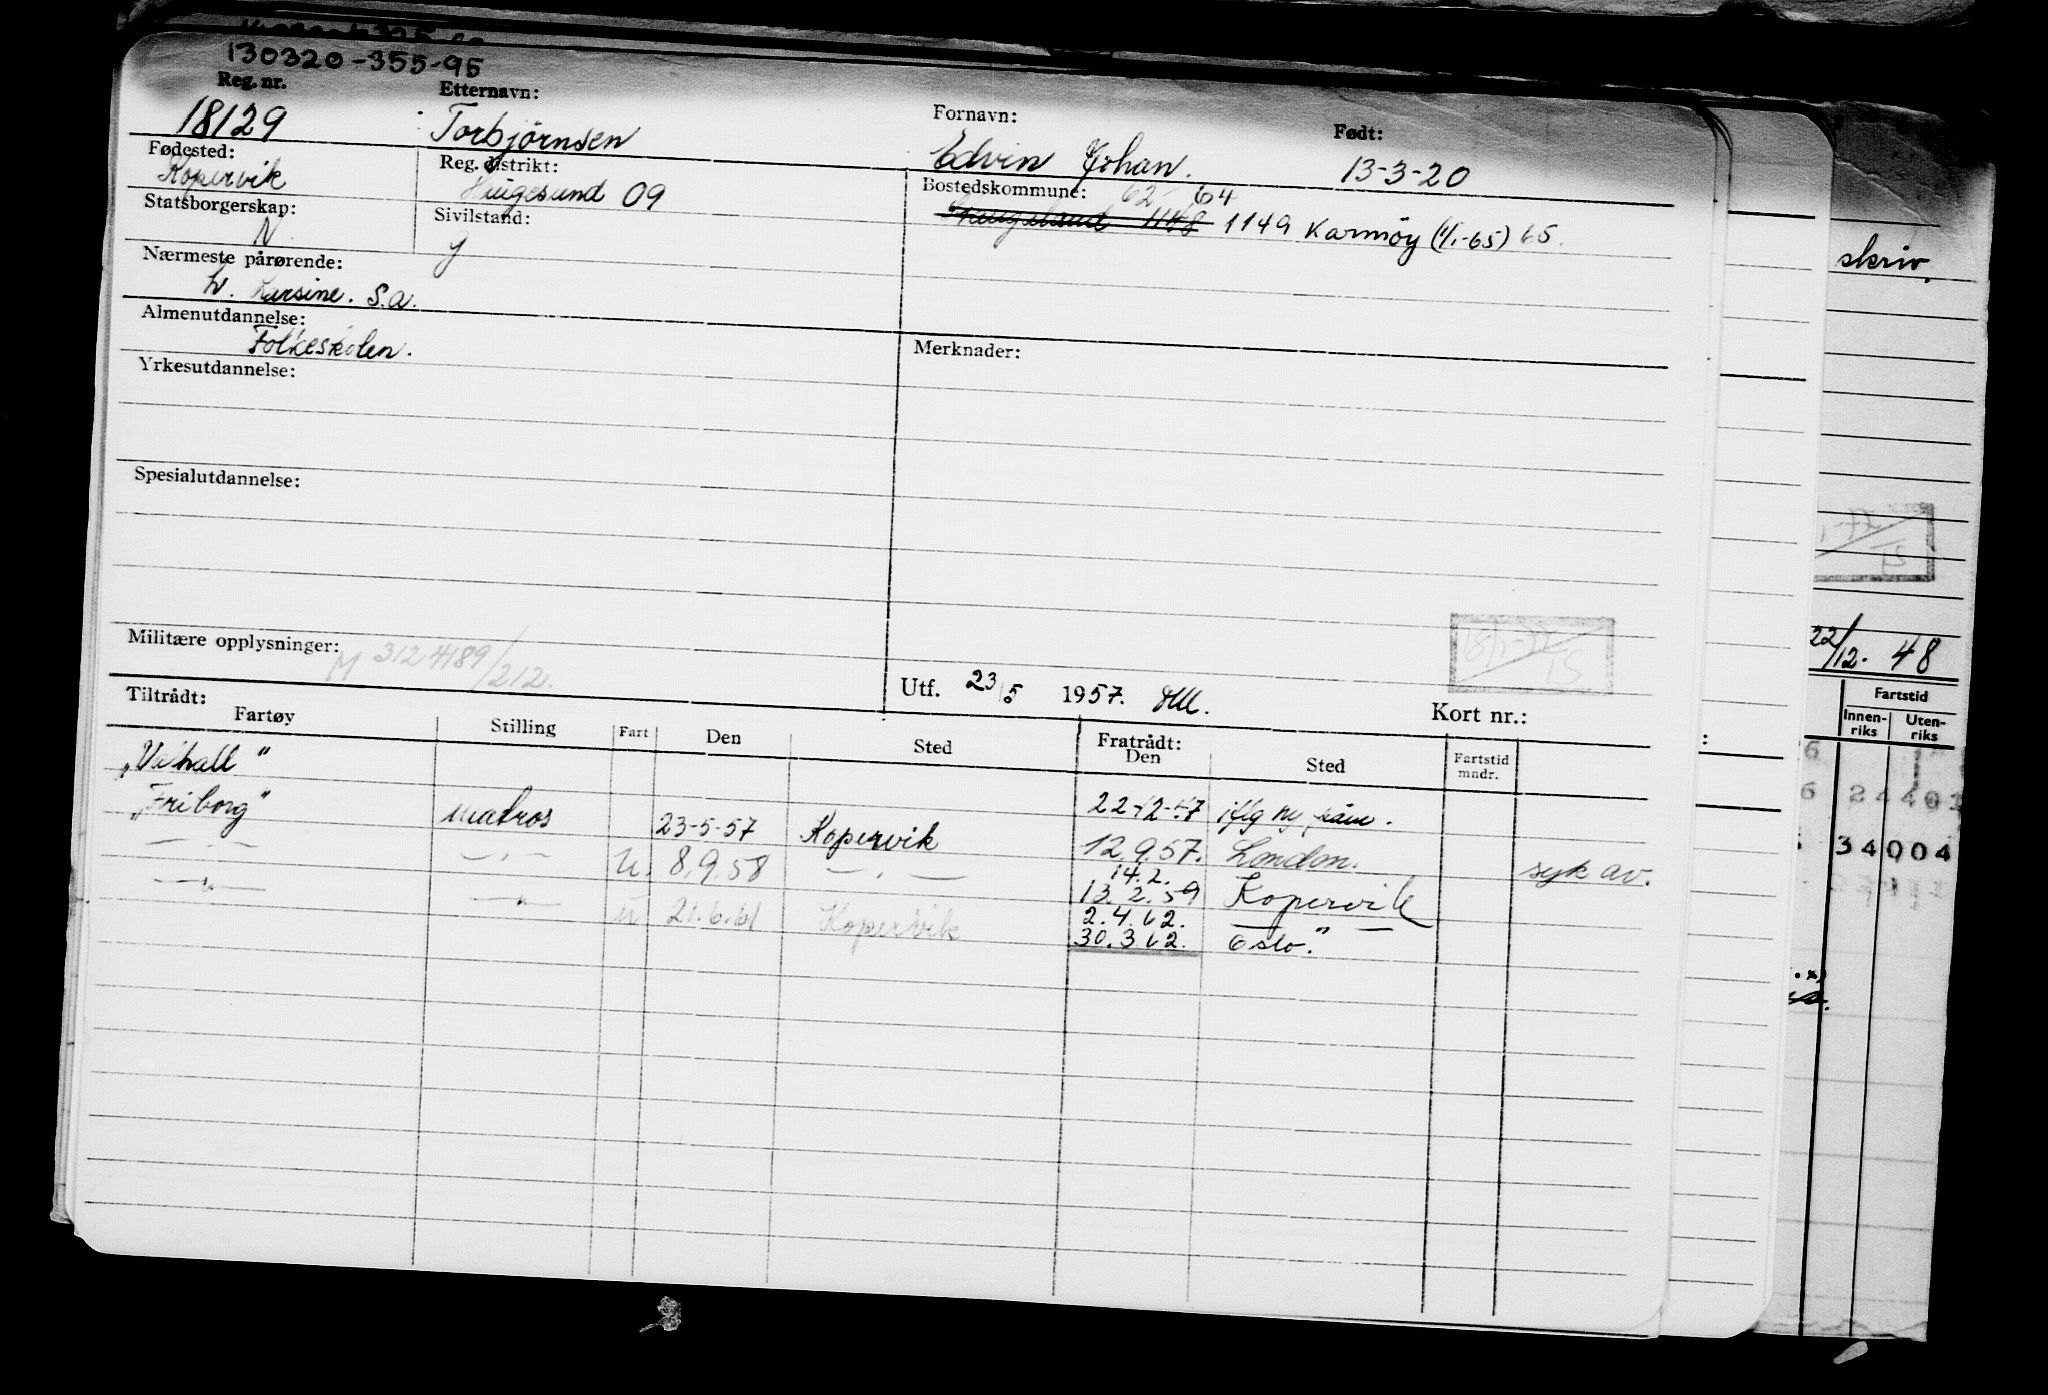 130320-355-95
Reg. nr. Etternavn: Fornavn: Født:
18129 Torbjørnsen Edvin Johan. 13-3-20
Fødested: Reg. distrikt: Bostedskommune: 62 - 64
Kopervik Haugesund 09 1148 1149 Karmøy (1/1-65) 65.
Statsborgerskap: Sivilstand:
N. g
Nærmeste pårørende:
h. Larsine. S.a.
Almenutdannelse:
Folkeskolen.
Merknader:
Yrkesutdannelse:
Spesialutdannelse:
Militære opplysninger:
M 3124189/212.
Utf. 23/5 1957. Kort nr.:
Tiltrådt: Fratrådt:
Fartøy Stilling Fart Den Sted Den Sted Fartstid mndr.
"Vahall" 22-12-47 iflg ny
"Friborg" matros 23-5-57 Kopervik 12.9.57. London. syk av.
— " — — " — U. 8.9.58 — " — 14.2.
13.2.59 Kopervik
— " — — " — U 21.6.61 Kopervik 2.4.62. — " —
30.3.62. Oslo.
skriv.
22/12. 48
Fartstid
Innenriks Utenriks
6
6 24401
34004